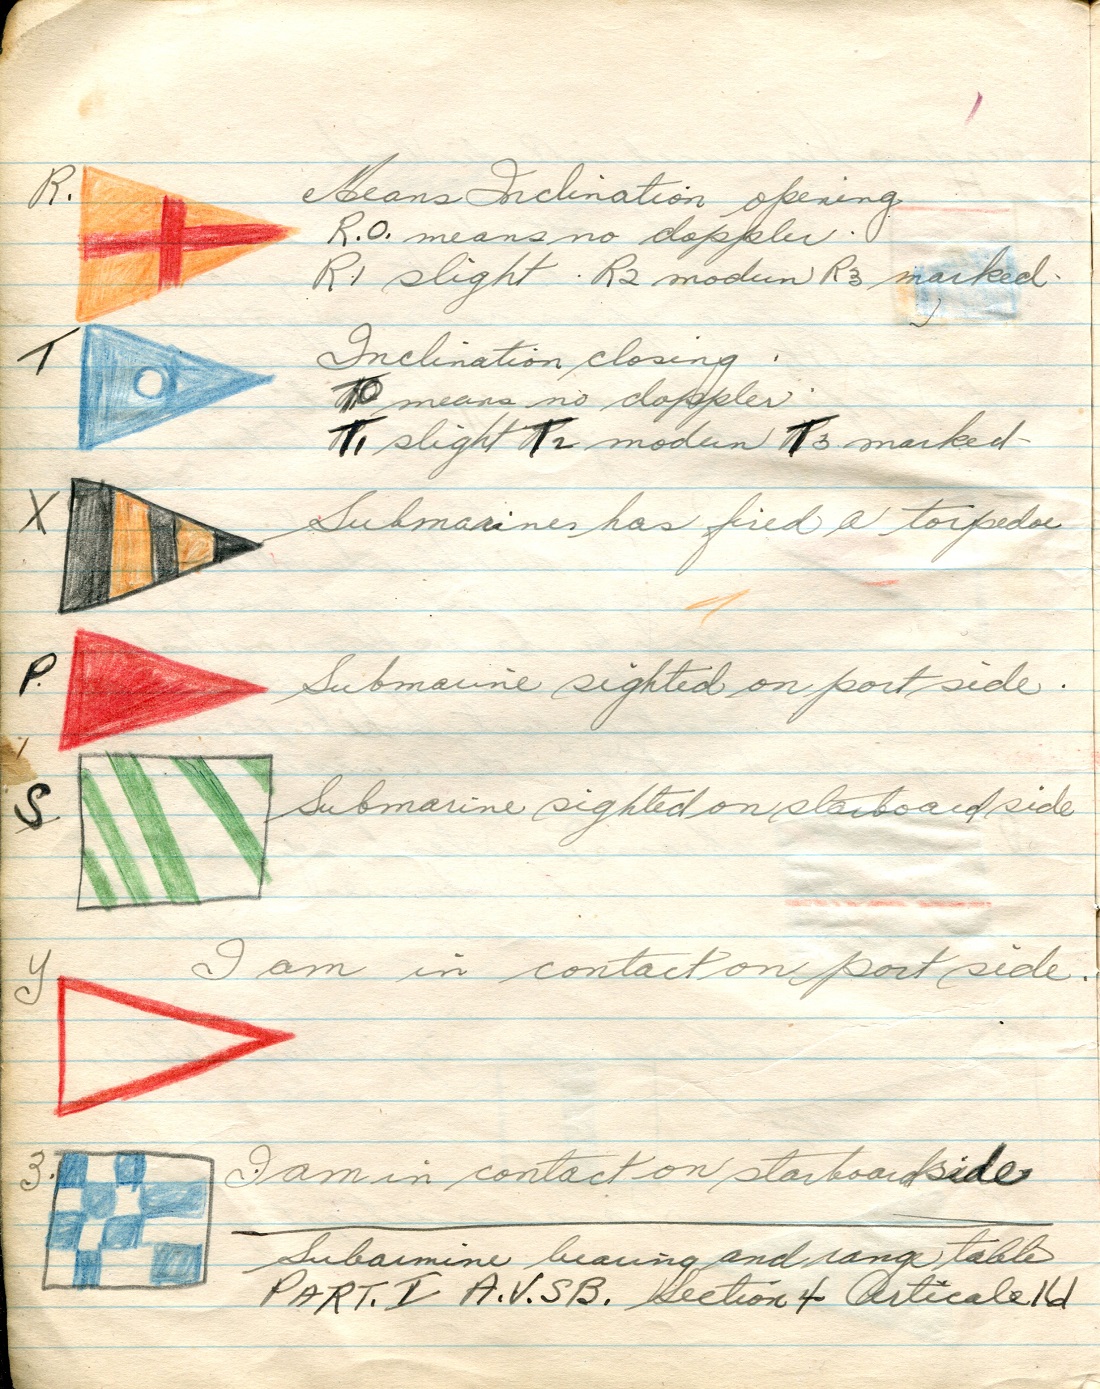 R. Means Inclination opening
R.O. means no doppler.
R1 slight . R2 modurn R3 marked.
T Inclination closing .
TO means no doppler.
T1 slight T2 modurn T3 marked-
X Submarines has fired a torpedoe
P. Submarine sighted on port side .
S Submarine sighted on starboard side
Y I am in contact on port side .
3. I am in contact on starboard side
Subarmine bearing and range table
PART. I A.V.SB. Section 4 Articale 16d